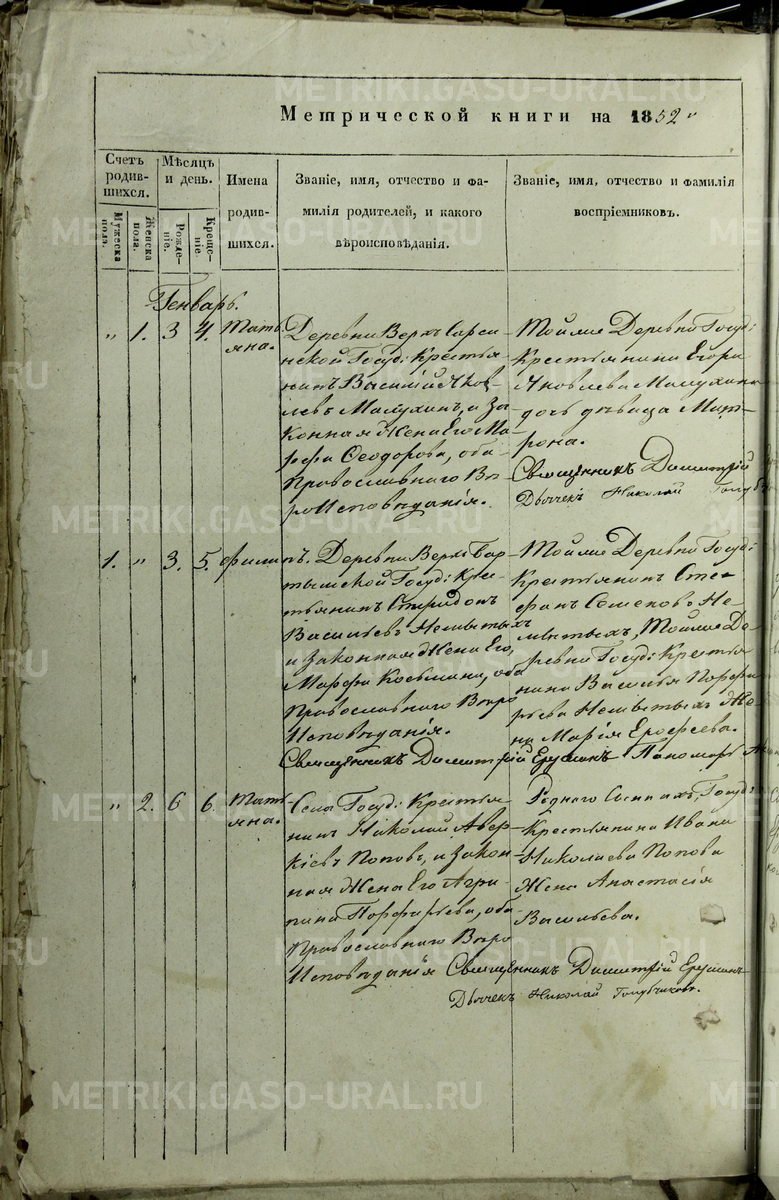 METRIKI.GASO-URAL.RU
Метрической книги на 1852 г
Счетъ родив-шихся.
Мужеска пола.
Женска пола.
Мѣсяцъ и день.
Рожде-ніе.
Креще-ніе.
Имена родив-шихся.
Званіе, имя, отчество и фа-
милія родителей, и какого
вѣроисповѣданія.
Званіе, имя, отчество и фамилія
воспріемниковъ.
Генварь.
„ 1. 3 4. Тать-
яна.
Деревни Верхъ Сарси-
нской Госуд: Крестья-
нинъ Василій Яков-
левъ Малухинъ, и За-
конная Жена Его Ма-
рфа Феодорова, оба
Православнаго Вѣ-
роисповѣданія.
Тойже Деревни Госуд:
Крестьянина Егора
Яковлева Малухина
дочь дѣвица Мат-
рона.
Священникъ Димитрій
Дьячекъ Николай
1. „ 3. 5. Филиппъ.
Деревни Верхъ Бар-
тымской Госуд: Кре-
стьянинъ Спиридонъ
Васильевъ Немытыхъ
и Законная Жена Его,
Марфа Козьмина, оба
Православнаго Вѣро
Исповѣданія.
Тойже Деревни Госуд:
Крестьянинъ Сте-
фанъ Семеновъ Не-
мытыхъ, Тойже Де-
ревни Госуд: Крестья-
нина Василья Порфи-
рьева Немытыхъ Же-
на Марія Ерофеева.
Священникъ Димитрій Пономарь
„ 2. 6 6. Тать-
яна.
Села Госуд: Крестья-
нинъ Николай Авер-
кіевъ Поповъ, и Закон-
ная Жена Его Агри-
пина Порфирьева, оба
Православнаго Вѣро
Исповѣданія
Крестьянина Ивана
Николаева Попова
Жена Анастасія
Васильева.
Священникъ Димитрій
Дьячекъ Николай Голубчиковъ.